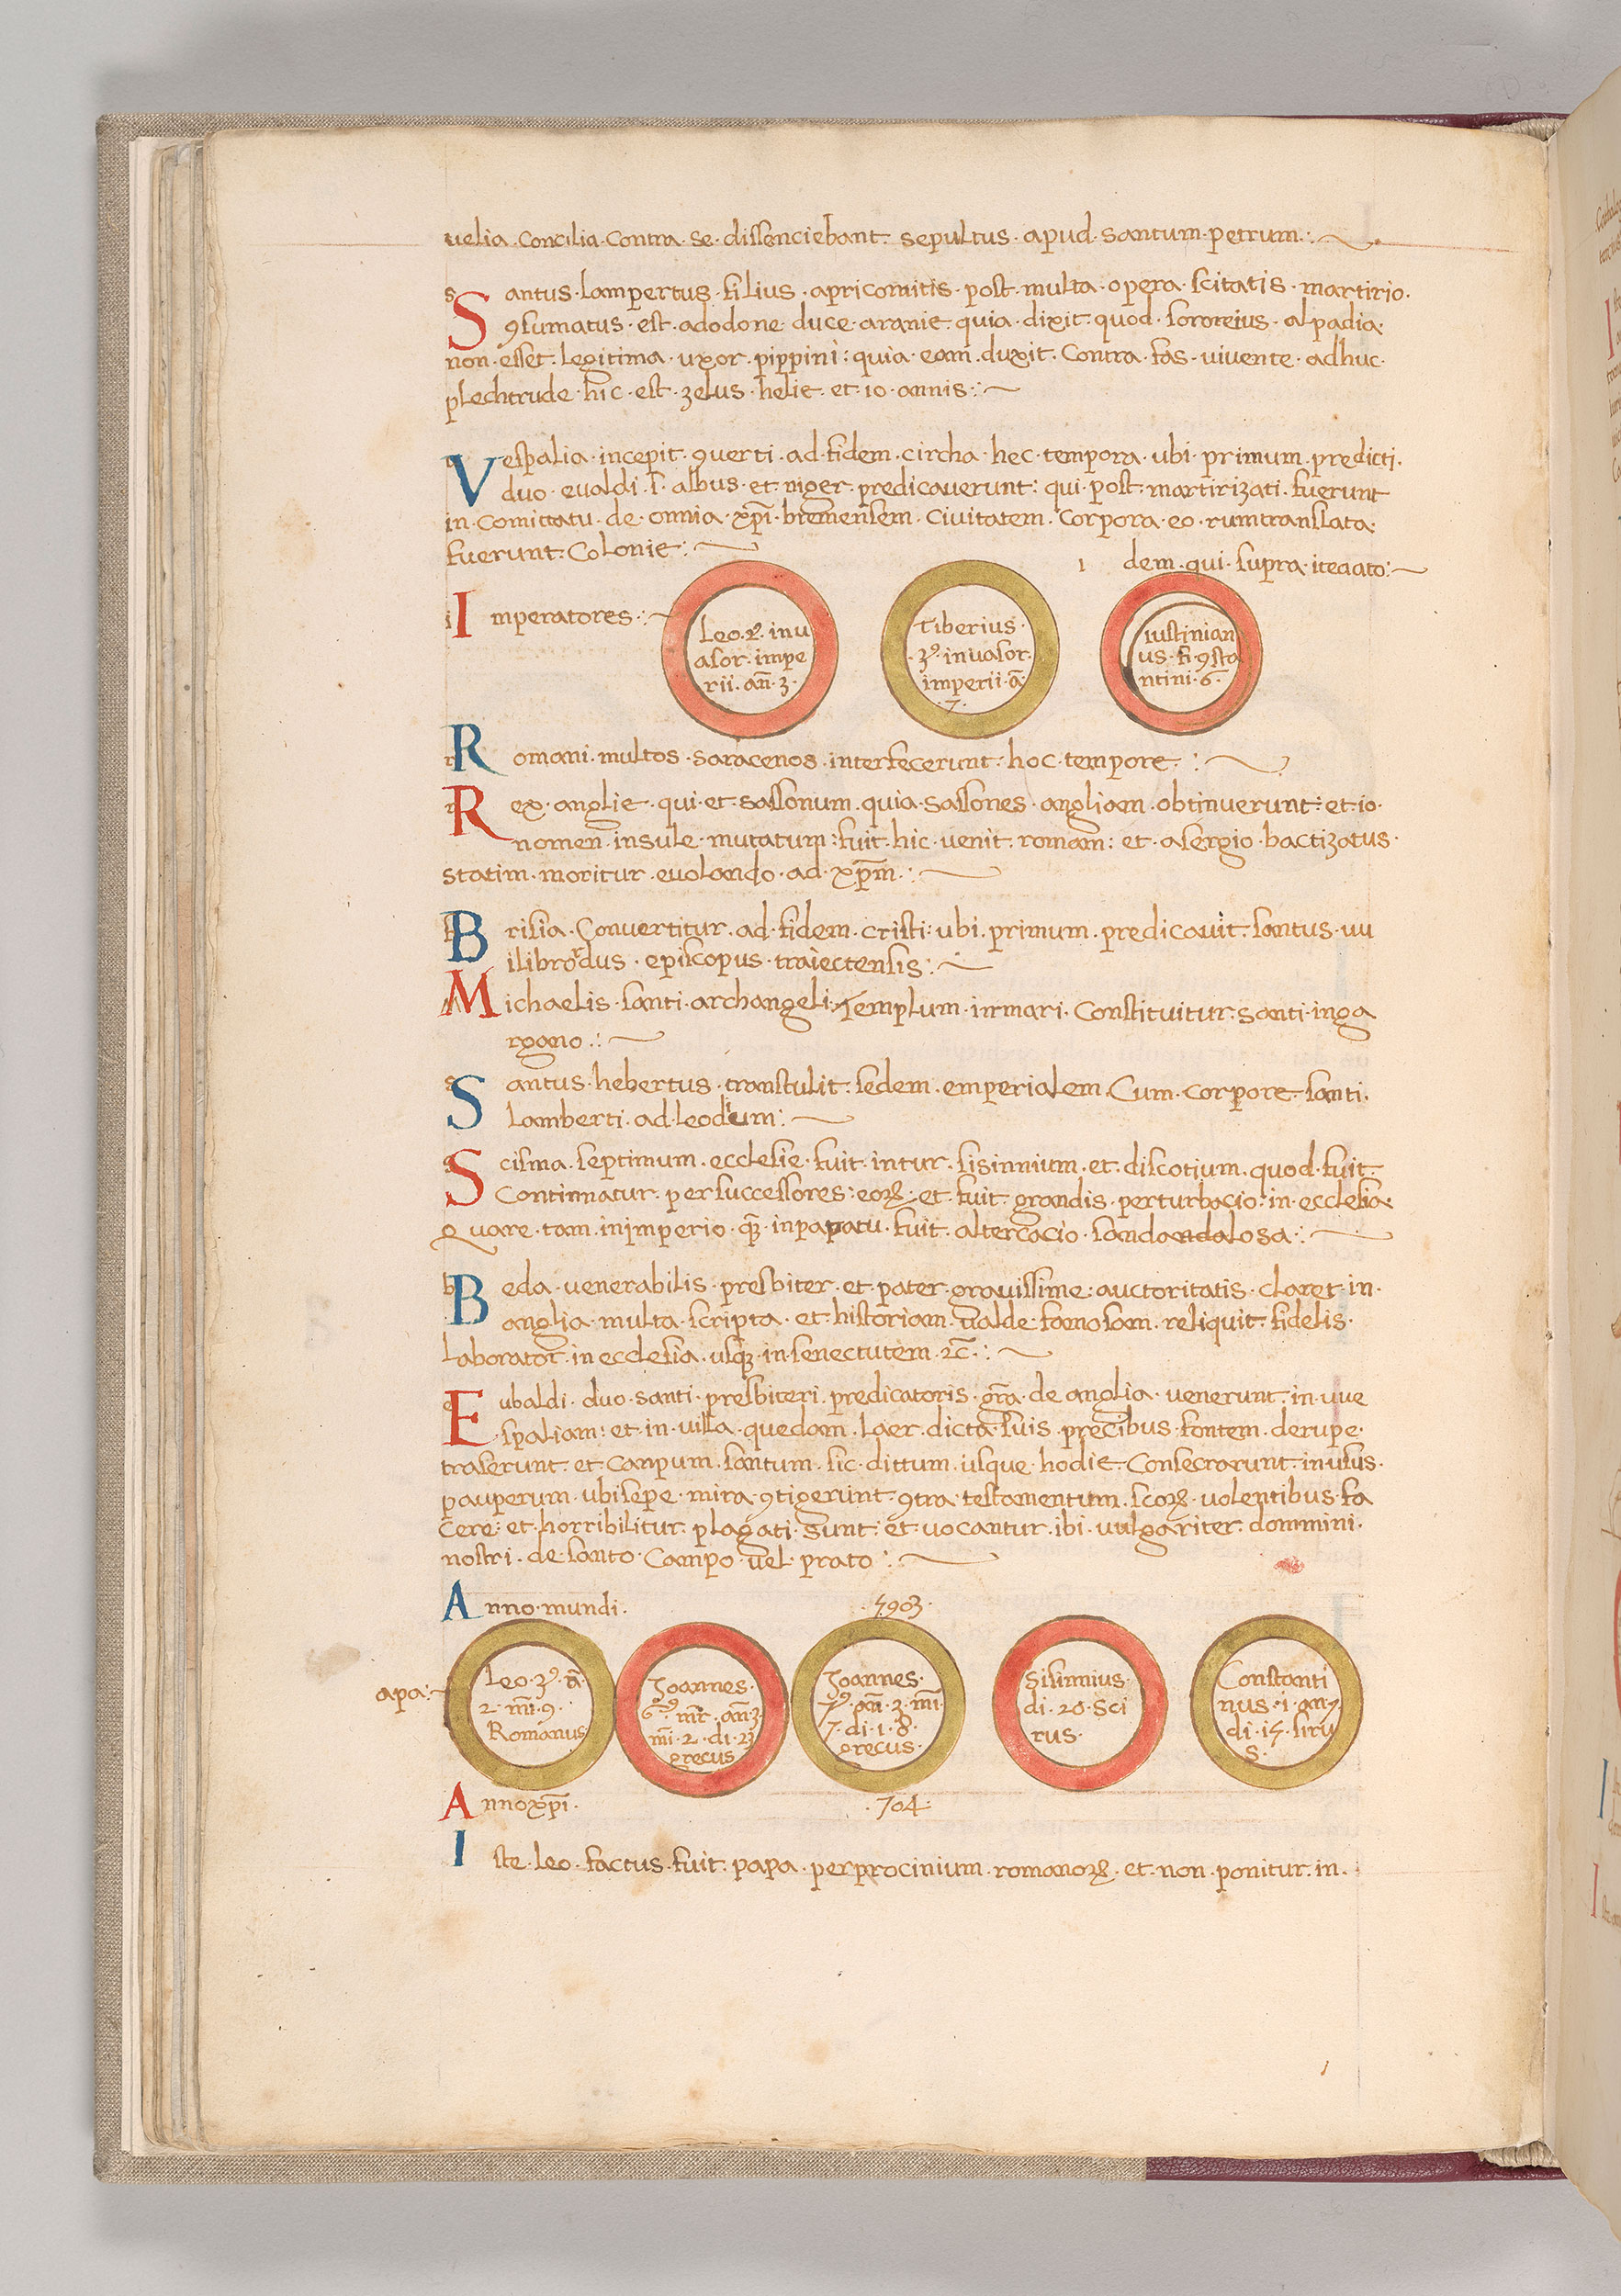 uelia · Concilia · Contra · se · dissenciebant · sepultus · apud · santum · petrum :
Santus · lampertus · filius · apricomitis · post · multa · opera · scitatis · martirio ·
9sumatus · est · adodone · duce · aranie · quia · dixit · quod · sororeius · alpadia ·
non · esset · legitima · uxor · pippini : quia · eam · duxit · Contra · fas · vivente · adhuc ·
plechtrude · hic · est · zelus · helie · et · io · annis :
Vespalia · incepit · 9verti · ad · fidem · circha · hec · tempora · ubi · primum · predicti ·
duo · evaldi · s̄ · albus · et · niger · predicaverunt : qui · post · martirizati · fuerunt
in · Comittatu · de · omnia · xp̄i · bremensem · Civitatem · Corpora · eo · rumtranslata ·
fuerunt · Colonie :
i dem · qui · supra · iteciato :
Imperatores :
Leo · 2 · inu
asor · impe
rii · an̄ · 3 ·
tiberius ·
· 3⁹ · invasor ·
imperii · ā ·
· 7 ·
iustinian
us · fi · 9sta
ntini · 6 ·
Romani · multos · saracenos · interfecerunt · hoc · tempore :
Rex · anglie · qui · et · sassonum · quia · sassones · angliam · obtinuerunt : et · io ·
nomen · insule · mutatum : fuit · hic · venit · romam : et · asergio · bactizatus ·
statim · moritur · evolando · ad · xp̄m :
Brisia · Convertitur · ad · fidem · cristi : ubi · primum · predicavit · santus · uu
ilibrordus · episcopus · traiectensis :
Michaelis · santi · archangeli · Templum · inmari · Constituitur · santi · inga
rgano :
Santus · hebertus · transtulit · sedem · emperialem · Cum · corpore · santi ·
Lamberti · ad · leodium :
Scisma · septimum · ecclesie · fuit · intur · sisinnium · et · discotium · quod · fuit ·
Continnatur · persuccessores : eoꝝ : et · fuit · grandis · perturbacio : in · ecclesia ·
Quare · tam · inimperio · q̄ȝ · inpapatu · fuit · altercacio · sandandalosa :
Beda · venerabilis · presbiter · et · pater · gravissime : auctoritatis · claret · in ·
anglia · multa · scripta · et · historiam · valde · famosam · reliquit · fidelis ·
Laborator · in ecclesia · usqȝ · in · senectutem · 2c̄ :
Eubaldi · duo · santi · presbiteri · predicatoris · gr̄a · de anglia · venerunt · in · vue
spaliam : et · in · villa · quedam · laer · dicta · suis · precibus · fontem · derupe ·
traserunt · et · Canpum · santum · sic · dittum · usque · hodie · Consecrarunt · inusus ·
pauperum · ubisepe · mira · 9tigerunt · 9tra · testamentum · scoꝝ · volentibus · fa
cere : et · horribilitur · plagati · sunt : et · uocantur · ibi · vulgariter · dommini ·
nostri · de · santo · Campo · vel · prato :
Anno · mundi · · 5903 ·
apa :
Leo · 3⁹ · ā
2 · m̄i · 9 ·
Romanus
Joannes ·
6⁹ · mr̄ · an̄ 3 ·
m̄i · 2 · di · 23
grecus
Joannes ·
7⁹ · an̄ · 2 · m̄i ·
7 · di · 1 · 8 ·
grecus ·
Sisinnius ·
di · 20 · Sci
rus ·
Constanti
nus · i · an · 7
di · 15 · siru
s ·
Anno xp̄i · · 704 ·
Iste · leo · factus · fuit · papa · perprocinium · romanoꝝ · et · non · ponitur · in ·